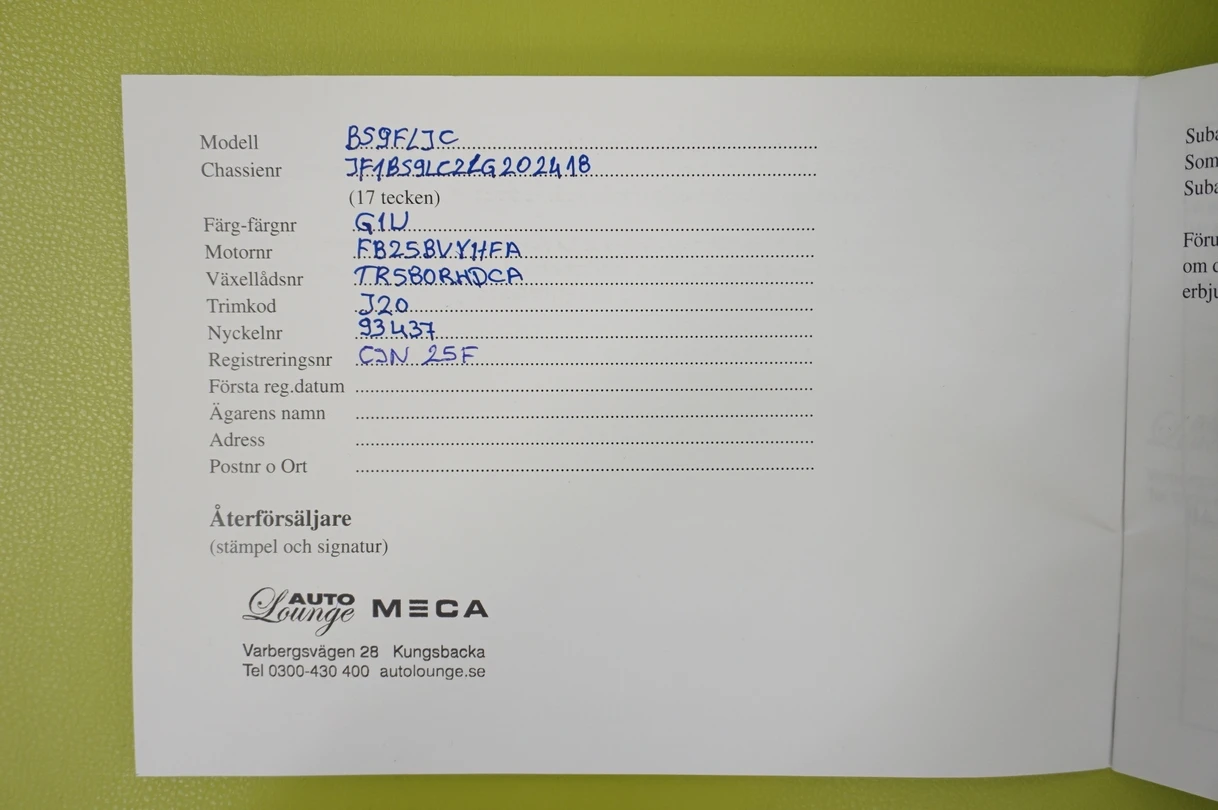 Modell BS9FLJC
Chassienr JF1BS9LC2LG202418
(17 tecken)
Färg-färgnr G1U
Motornr FB25BVYHFA
Växellådsnr TR580RHDCA
Trimkod J20
Nyckelnr 93437
Registreringsnr CJN 25F
Första reg.datum
Ägarens namn
Adress
Postnr o Ort
Återförsäljare
(stämpel och signatur)
AUTO Lounge MECA
Varbergsvägen 28 Kungsbacka
Tel 0300-430 400 autolounge.se
Som
Föru